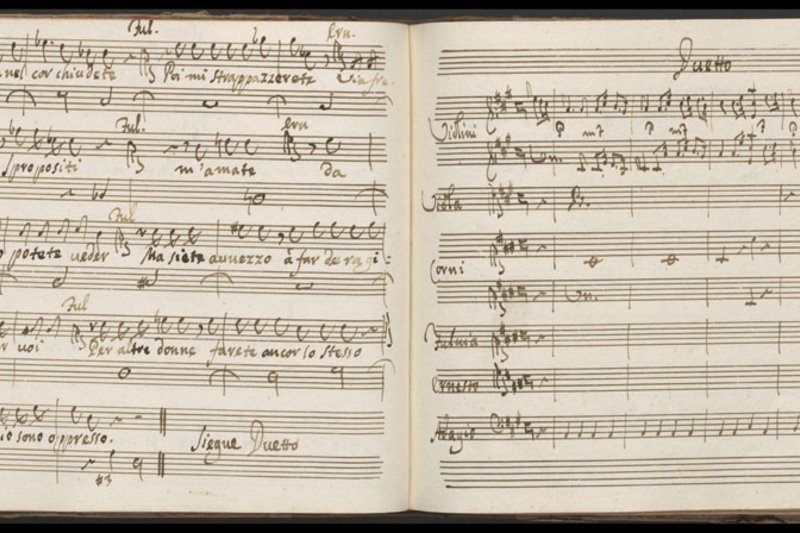 Ful. Ern.
nel cor chiudete Poi mi strappazzerete Via fra-
Ful. Ern
spropositi m'amate da
Ful
potete veder Ma siete avvezzo à far de ragi:
Ful
voi Per altre donne farete ancor lo stesso
io sono oppresso.
Siegue Duetto
Duetto
Violini
P mf P mf P
Viola
Corni
Fulvia
Ernesto
Adagio